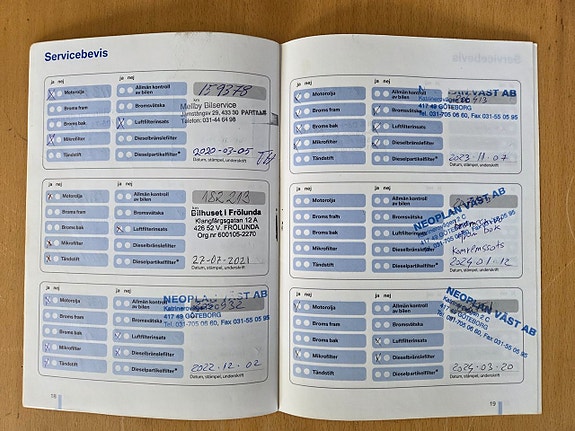 Servicebevis
ja nej
ja nej
Motorolja
Allmän kontroll
av bilen
159378
km
Broms fram
Bromsvätska
Mellby Bilservice
433 30 PARTILLE
Telefon: 031-44 64 98
Broms bak
Luftfilterinsats
Mikrofilter
Dieselbränslefilter
2020-03-05
Tändstift
Dieselpartikelfilter*
Datum, stämpel, underskrift
ja nej
ja nej
Motorolja
Allmän kontroll
av bilen
182213
km
Broms fram
Bromsvätska
Bilhuset i Frölunda
Klangfärgsgatan 12 A
426 52 V. FRÖLUNDA
Org.nr 600105-2270
Broms bak
Luftfilterinsats
Mikrofilter
Dieselbränslefilter
27-07-2021
Tändstift
Dieselpartikelfilter*
Datum, stämpel, underskrift
ja nej
ja nej
Motorolja
Allmän kontroll
av bilen
NEOPLAN VÄST AB
417 49 GÖTEBORG
Tel. 031-705 06 60, Fax 031-55 05 95
Broms fram
Bromsvätska
Broms bak
Luftfilterinsats
Mikrofilter
Dieselbränslefilter
2022.12.02
Tändstift
Dieselpartikelfilter*
Datum, stämpel, underskrift
18
ja nej
ja nej
Motorolja
Allmän kontroll
av bilen
VÄST AB
417 49 GÖTEBORG
Tel. 031-705 06 60, Fax 031-55 05 95
Broms fram
Bromsvätska
Broms bak
Luftfilterinsats
Mikrofilter
Dieselbränslefilter
2023.11.07
Tändstift
Dieselpartikelfilter*
Datum, stämpel, underskrift
ja nej
ja nej
Motorolja
Allmän kontroll
av bilen
NEOPLAN VÄST AB
417 49 GÖTEBORG
Tel. 031-705 06 60, Fax 031-55 05 95
Broms fram
Bromsvätska
Broms bak
Luftfilterinsats
bak
Mikrofilter
Dieselbränslefilter
Tändstift
Dieselpartikelfilter*
2024.01.12
Datum, stämpel, underskrift
ja nej
ja nej
Motorolja
Allmän kontroll
av bilen
NEOPLAN VÄST AB
417 49 GÖTEBORG
Tel. 031-705 06 60, Fax 031-55 05 95
Broms fram
Bromsvätska
Broms bak
Luftfilterinsats
Mikrofilter
Dieselbränslefilter
2024.03.20
Tändstift
Dieselpartikelfilter*
Datum, stämpel, underskrift
19